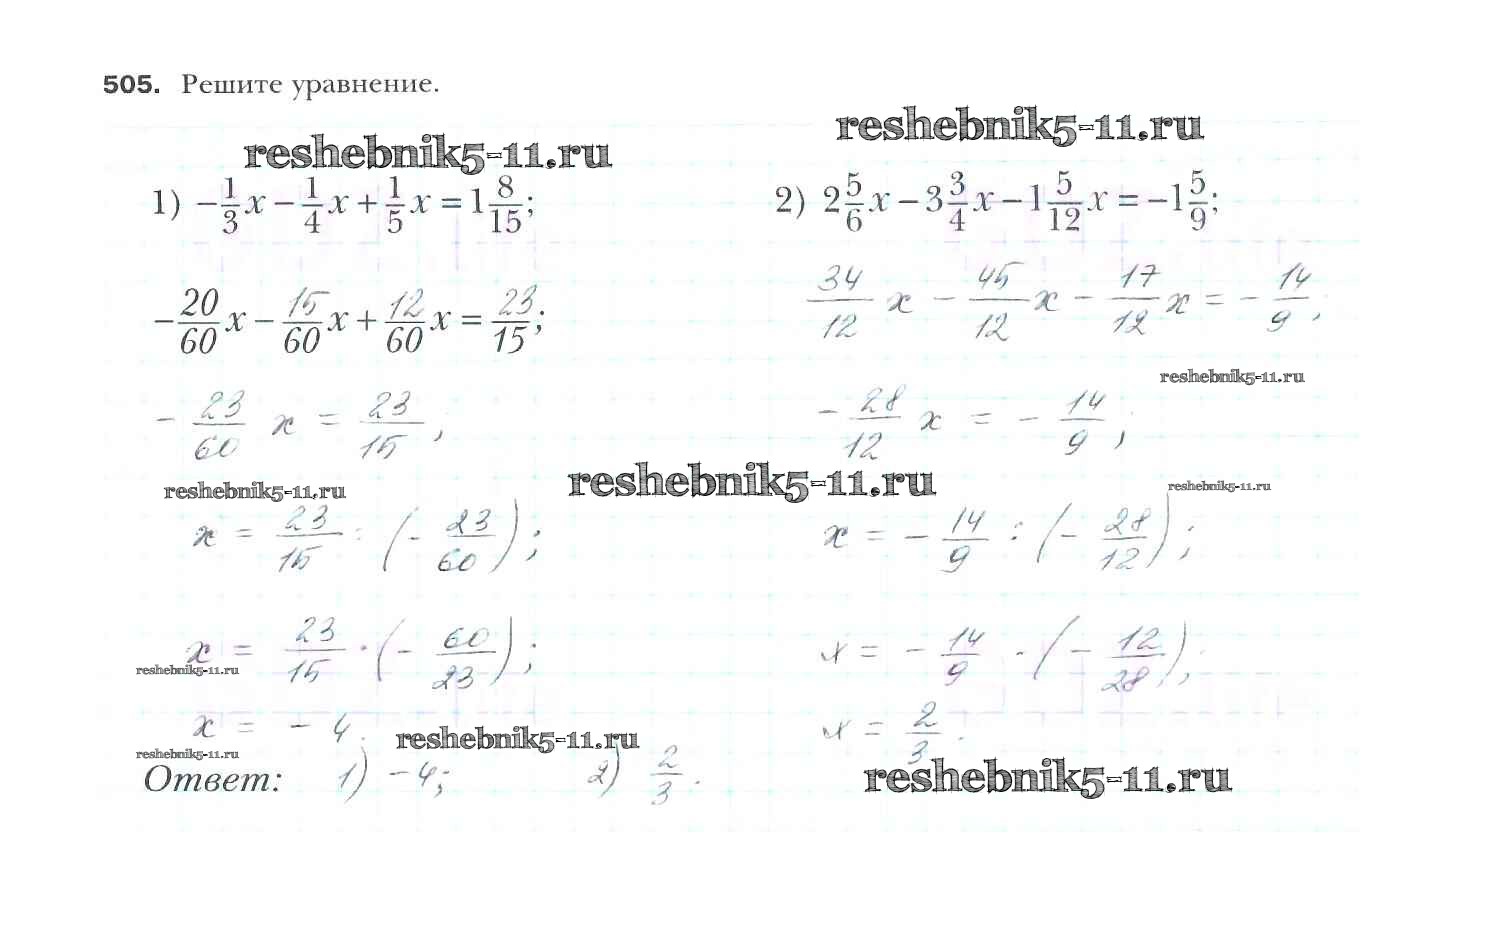 505. Решите уравнение.
reshebnik5-11.ru
reshebnik5-11.ru
1) −1/3 x − 1/4 x + 1/5 x = 1 8/15;
2) 2 5/6 x − 3 3/4 x − 1 5/12 x = −1 5/9;
−20/60 x − 15/60 x + 12/60 x = 23/15;
34/12 x − 45/12 x − 17/12 x = − 14/9;
reshebnik5-11.ru
− 23/60 x = 23/15;
− 28/12 x = − 14/9;
reshebnik5-11.ru
reshebnik5-11.ru
reshebnik5-11.ru
x = 23/15 : (− 23/60);
x = − 14/9 : (− 28/12);
x = 23/15 · (− 60/23);
x = − 14/9 · (− 12/28);
reshebnik5-11.ru
x = − 4.
x = 2/3.
reshebnik5-11.ru
reshebnik5-11.ru
Ответ: 1) −4; 2) 2/3.
reshebnik5-11.ru